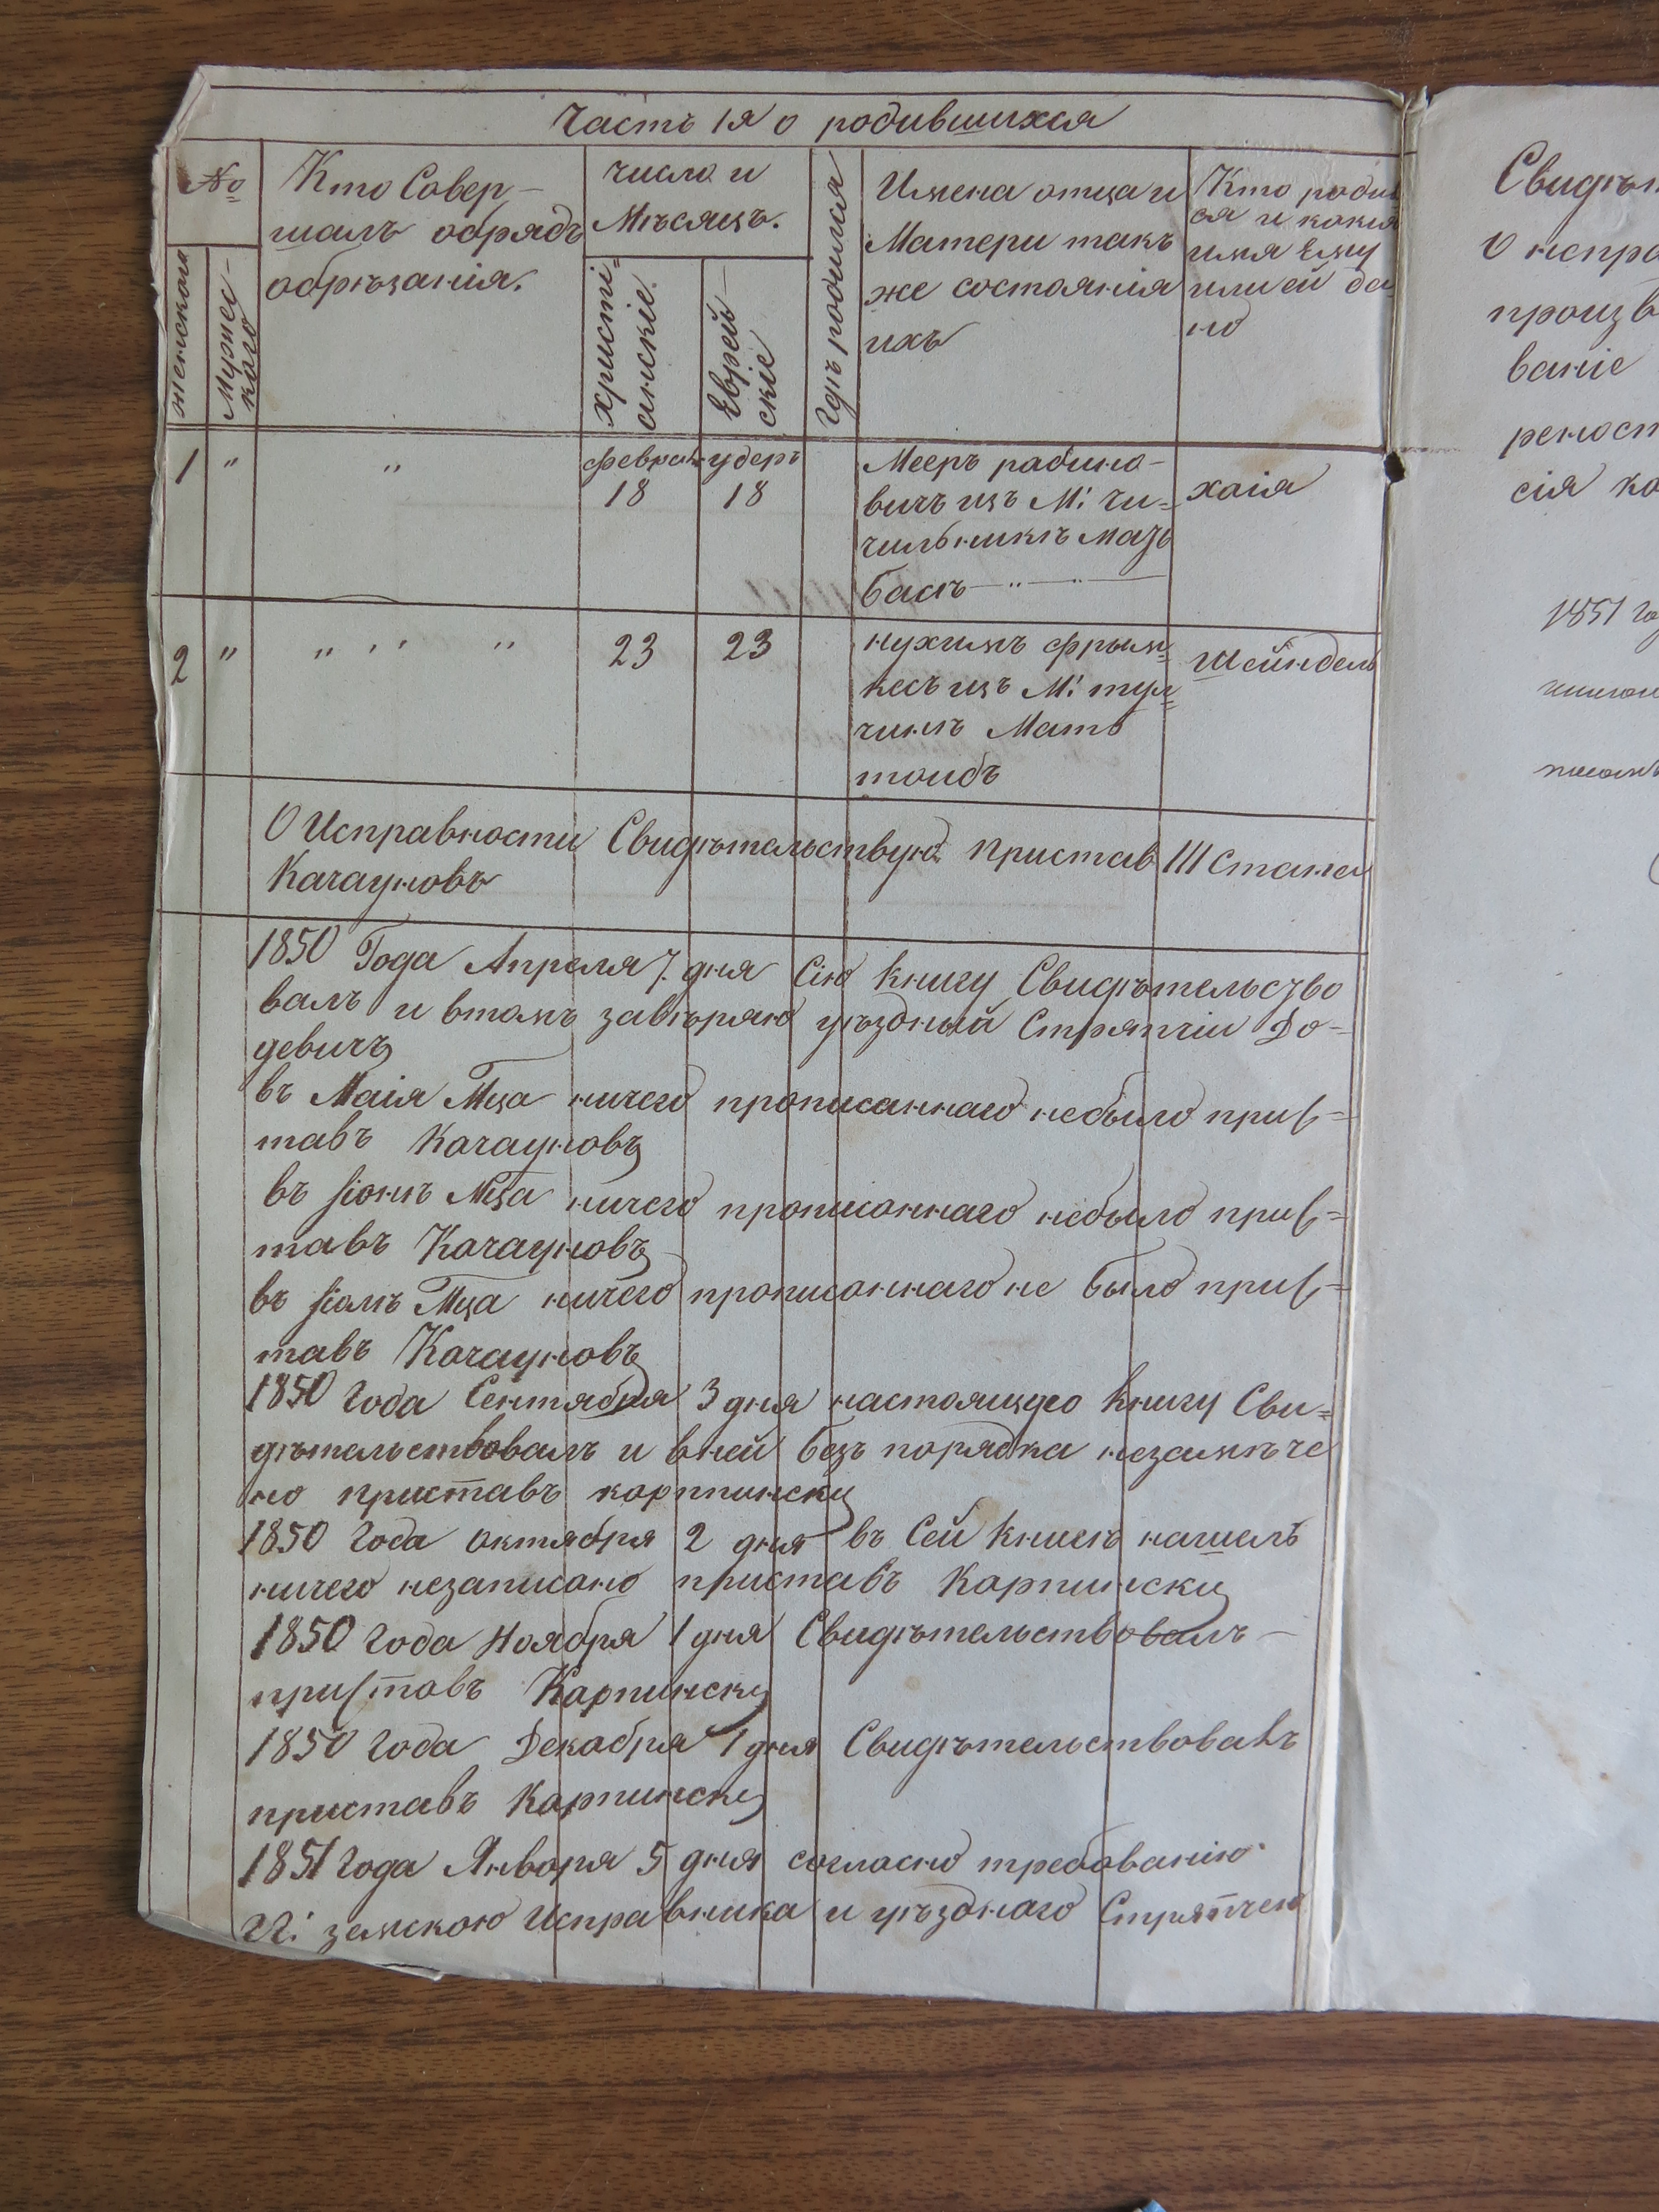 Часть 1я о родившихся
№
женскаго
Мужес-
каго
Кто Совер-
шалъ обрядъ
обрѣзанія.
число и
Мѣсяцъ.
христі=
анскіе.
Еврей-
скіе
Гдѣ родился
Имена отца и
Матери такъ
же состоянія
ихъ
Кто родил
ся и какія
имя Ему
или ей да
но
1 " " февраль удеръ
18 18
Мееръ рабино-
вичъ изъ М: чи=
чильникъ мать
бася
хаія
2 " " ' ' " 23 23
нухимъ фрым=
кесъ изъ М: тул=
чинъ Мать
тоибъ
Шейндель
О Исправности Свидѣтельствую Пристав III Стана
Качауновъ
1850 Года Апреля 7. дня Сію книгу Свидѣтельство
валъ и втомъ завѣряю уѣздный Стряпчіи До-
девичъ
въ Маія Мца ничего прописаннаго небыло прис=
тавъ Качауновъ
въ Іюнѣ Мца ничего прописаннаго небыло прис=
тавъ Качауновъ
въ Іюлѣ Мца ничего прописаннаго не было прис=
тавъ Качауновъ
1850 Года Сентября 3 дня настоящую книгу Сви=
дѣтельствовалъ и вней безъ порядка незамѣче
но приставъ карпински
1850 Года октября 2 дня въ Сей книгѣ нашелъ
ничего незаписано приставъ Карпински
1850 Года Ноября 1 дня Свидѣтельствовалъ -
приставъ Карпински
1850 Года Декабря 1 дня Свидѣтельствовалъ
приставъ Карпински
1851 Года Января 5 дня согласно требованію
земскою Исправника и уѣзднаго Стряпчею
Свидѣт
О испра
произв
ваніе
реност
сія ко
1851 го